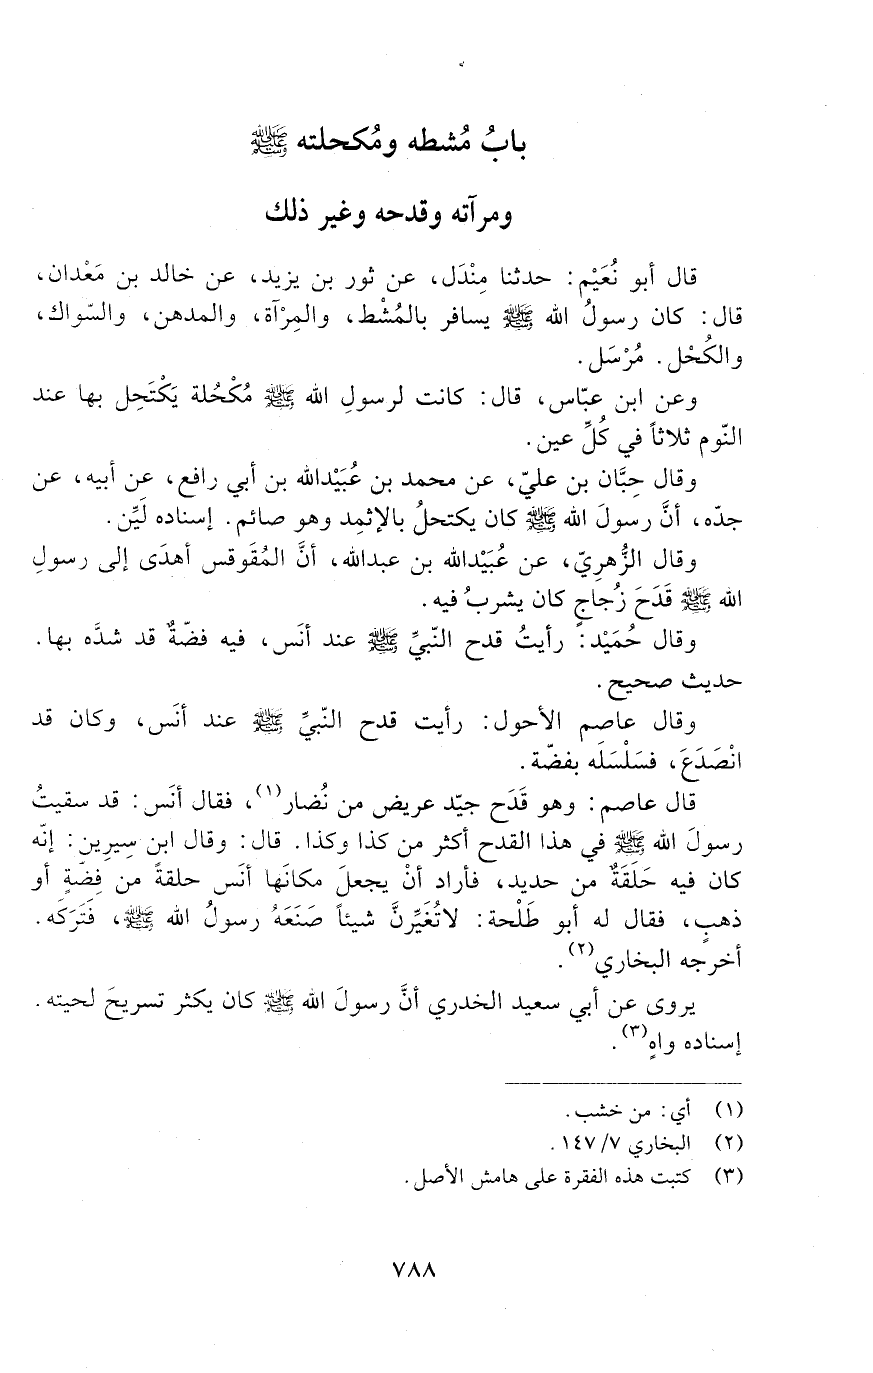 بابُ مُشطه ومُكحلته ﷺ
ومرآته وقدحه وغير ذلك
قال أبو نُعَيْم: حدثنا مِنْدَل، عن ثور بن يزيد، عن خالد بن مَعْدان،
قال: كان رسولُ الله ﷺ يسافر بالمُشْط، والمِرْآة، والمدهن، والسّواك،
والكُحْل. مُرْسَل.
وعن ابن عبّاس، قال: كانت لرسولِ الله ﷺ مُكْحُلة يَكْتَحِل بها عند
النّوم ثلاثاً في كُلِّ عين.
وقال حِبَّان بن عليّ، عن محمد بن عُبَيْدالله بن أبي رافع، عن أبيه، عن
جدّه، أنَّ رسولَ الله ﷺ كان يكتحلُ بالإثمِد وهو صائم. إسناده لَيِّن.
وقال الزُّهريّ، عن عُبَيْدالله بن عبدالله، أنَّ المُقَوقس أهدَى إلى رسولِ
الله ﷺ قَدَحَ زُجاجٍ كان يشربُ فيه.
وقال حُمَيْد: رأيتُ قدح النّبيِّ ﷺ عند أنَس، فيه فضّةٌ قد شدَّه بها.
حديث صحيح.
وقال عاصم الأحول: رأيت قدح النّبيِّ ﷺ عند أنَس، وكان قد
انْصَدَعَ، فسَلْسَلَه بفضّة.
قال عاصم: وهو قَدَح جيّد عريض من نُضار(١)، فقال أنَس: قد سقيتُ
رسولَ الله ﷺ في هذا القدح أكثر من كذا وكذا. قال: وقال ابن سِيرِين: إنّه
كان فيه حَلَقَةٌ من حديد، فأراد أنْ يجعلَ مكانَها أنَس حلقةً من فِضّةٍ أو
ذهبٍ، فقال له أبو طَلْحة: لاتُغَيِّرنَّ شيئاً صَنَعَهُ رسولُ الله ﷺ، فَتَرَكَه.
أخرجه البخاري(٢).
يروى عن أبي سعيد الخدري أنَّ رسولَ الله ﷺ كان يكثر تسريحَ لحيته.
إسناده واهٍ(٣).
(١) أي: من خشب.
(٢) البخاري ٧/ ١٤٧.
(٣) كتبت هذه الفقرة على هامش الأصل.
٧٨٨